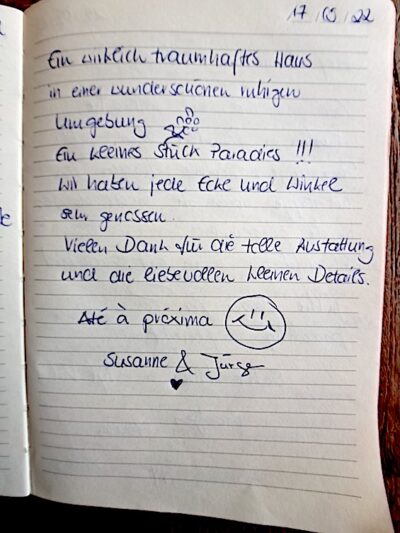 17 22
Ein wirklich traumhaftes Haus
in einer wunderschönen ruhigen
Umgebung
Ein kleines Stück Paradies !!!
Wir haben jede Ecke und Winkel
sehr genossen.
Vielen Dank für die tolle Austattung
und die liebevollen kleinen Details.
Até à próxima
Susanne & Jürgen